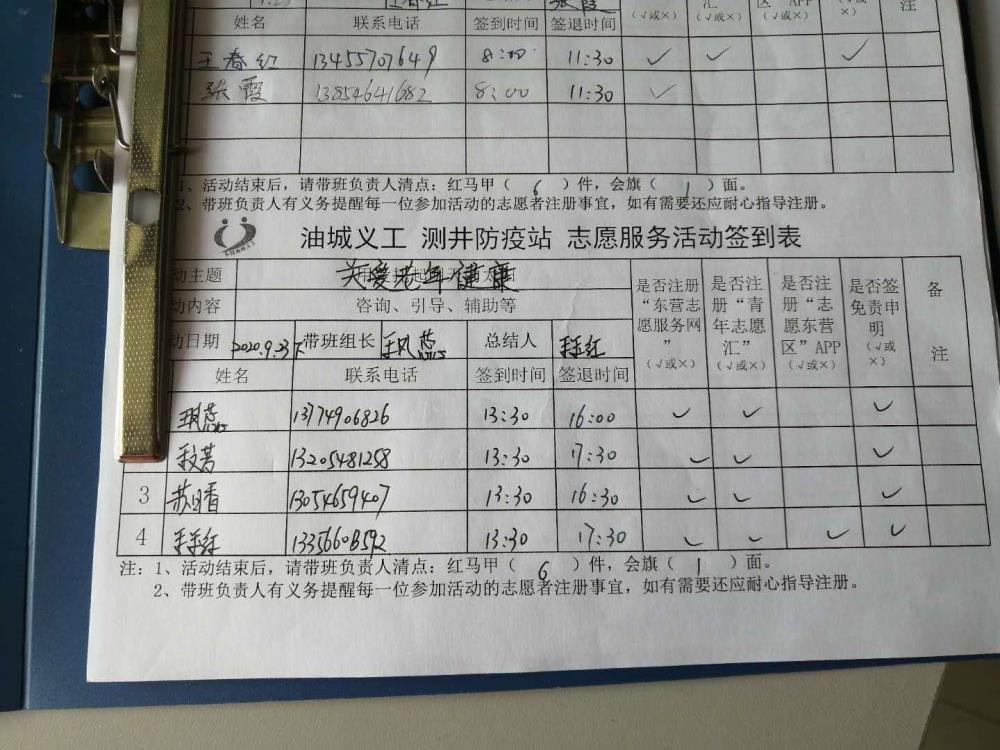 姓名 联系电话 签到时间 签退时间 (√或×) 汇 (√或×) 区 APP (√或×) ×) 注
王春红 13455707649 8:00 11:30 ✓ ✓ ✓
张霞 13854641682 8:00 11:30 ✓
1、活动结束后，请带班负责人清点：红马甲（ 6 ）件，会旗（ 1 ）面。
2、带班负责人有义务提醒每一位参加活动的志愿者注册事宜，如有需要还应耐心指导注册。
油城义工 测井防疫站 志愿服务活动签到表
动主题 关爱老年健康 是否注册“东营志愿服务网”(√或×) 是否注册“青年志愿汇”(√或×) 是否注册“志愿东营区”APP(√或×) 是否签免责申明(√或×) 备注
动内容 咨询、引导、辅助等
动日期 2020.9.23下 带班组长 总结人
姓名 联系电话 签到时间 签退时间
13774906826 13:30 16:00 ✓ ✓ ✓
13205481258 13:30 17:30 ✓ ✓ ✓
3 苏日香 13054659407 13:30 16:30 ✓ ✓ ✓
4 13:30 17:30 ✓ ✓ ✓ ✓
注：1、活动结束后，请带班负责人清点：红马甲（ 6 ）件，会旗（ 1 ）面。
2、带班负责人有义务提醒每一位参加活动的志愿者注册事宜，如有需要还应耐心指导注册。